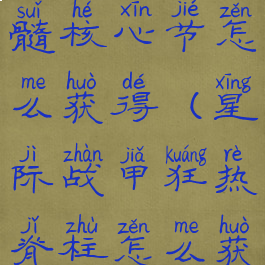 suǐ hé xīn jié zěn
髓核心节怎
me huò dé xīng
么获得（星
jì zhàn jiǎ kuáng rè
际战甲狂热
jǐ zhù zěn me huò
脊柱怎么获